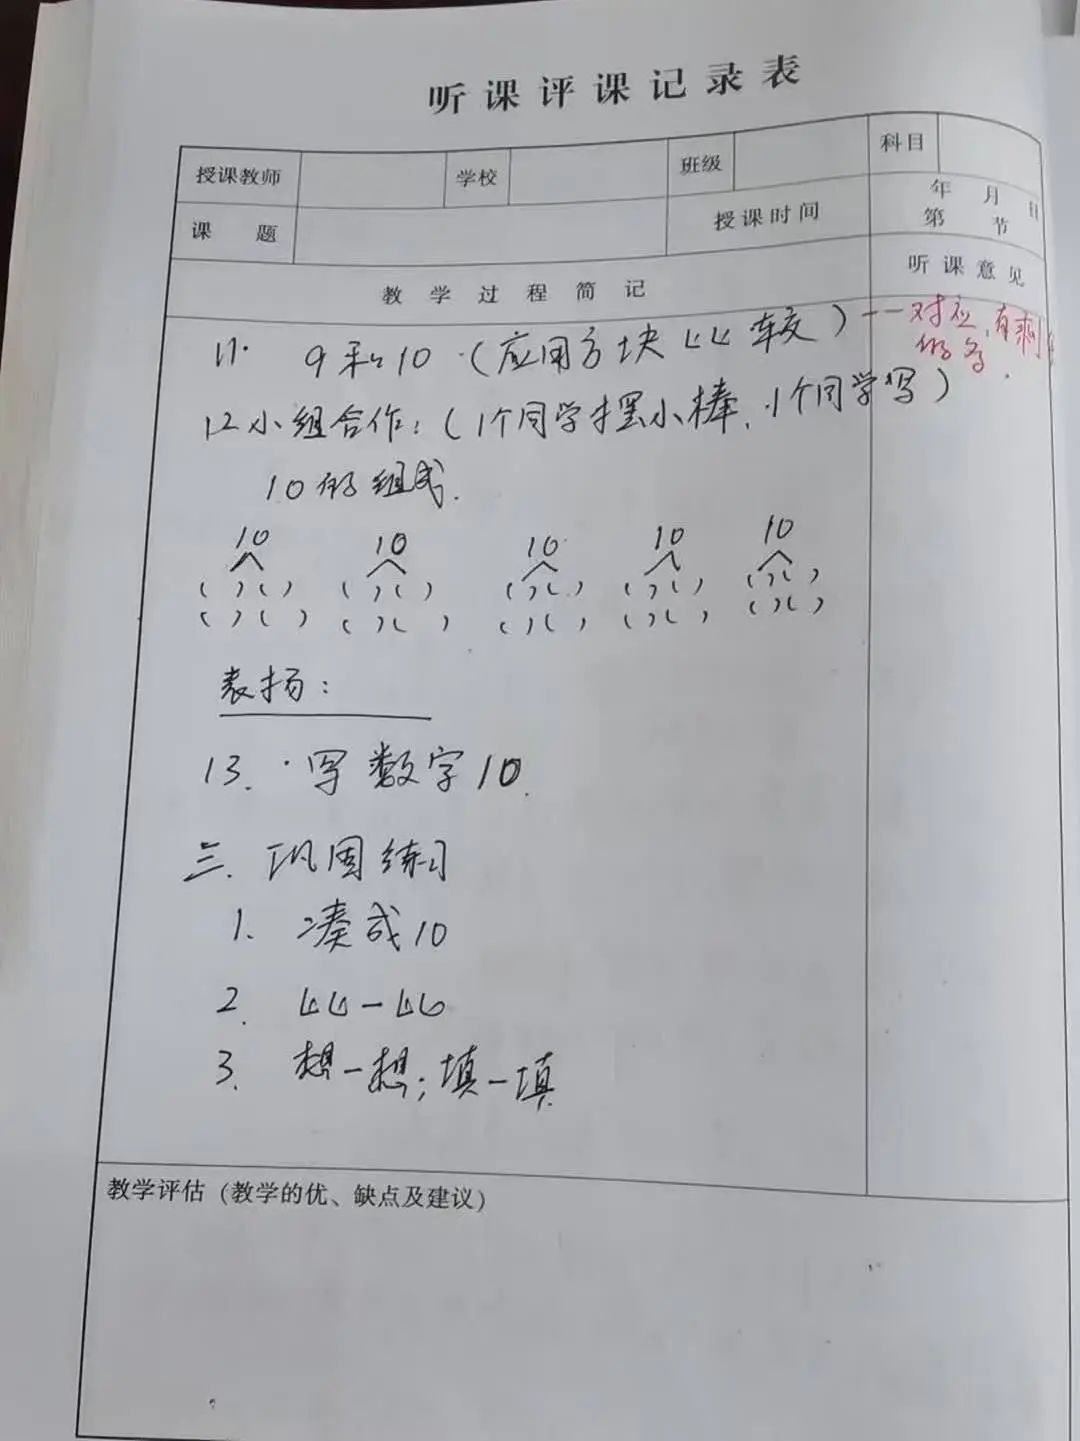 听课评课记录表
授课教师 学校 班级 科目
课 题 授课时间 年 月 日
第 节
教学过程简记 听课意见
11. 9和10.(应用方块比较) 一一对应,有剩
的多.
12小组合作:(1个同学摆小棒,1个同学写)
10的组成.
10 10 10 10 10
( )( ) ( )( ) ( )( ) ( )( ) ( )( )
( )( ) ( )( ) ( )( ) ( )( ) ( )( )
表扬:
13. 写数字10.
三. 巩固练习
1. 凑成10
2. 比一比
3. 想一想;填一填
教学评估(教学的优、缺点及建议)